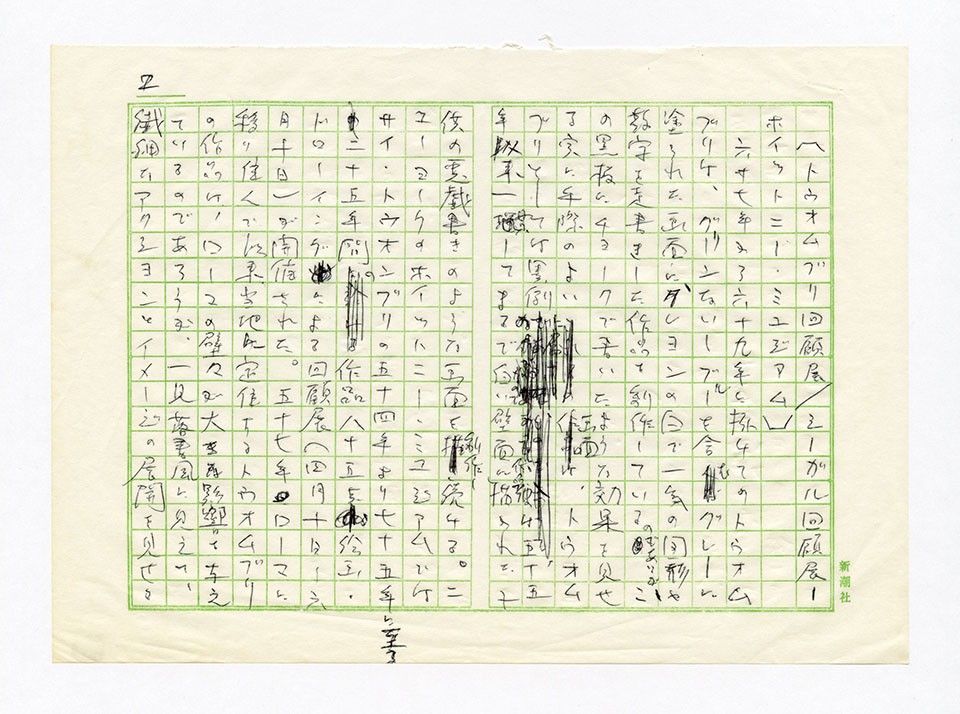 2
〈トウオムブリ回顧展／シーガル回顧展ー
ホイットニー・ミユジアム〉
六十七年から六十九年に掛けてのトウオム
ブリは、グリーンないしブルーを含むグレーに
塗られた画面に、クレヨンの白で一気の図形や
数字を走書きした作品を創作している
の黒板にチヨークで書いたような効果を見せ
る実に手際のよい画面は、トウオム
ブリとしては異例
年
してまるで白い壁面に描かれた子
供の悪戯書きのような画面を創作し続ける。ニ
ユーヨークのホイットニー・ミユジアムでは
サイ・トウオンブリの五十四年より七十五年に至る
二十五年間の作品八十五点 絵画・
ドローイングによる回顧展（四月十日ー六
月十日）が開催された。五十七年ローマに
移り住んで以来当地に定住するトウオムブリ
の作品は、ローマの壁々が大きな影響を与え
ているのであろうが、一見落書風に見えて、
繊細なアクシヨンとイメージの展開を見せる
新潮社